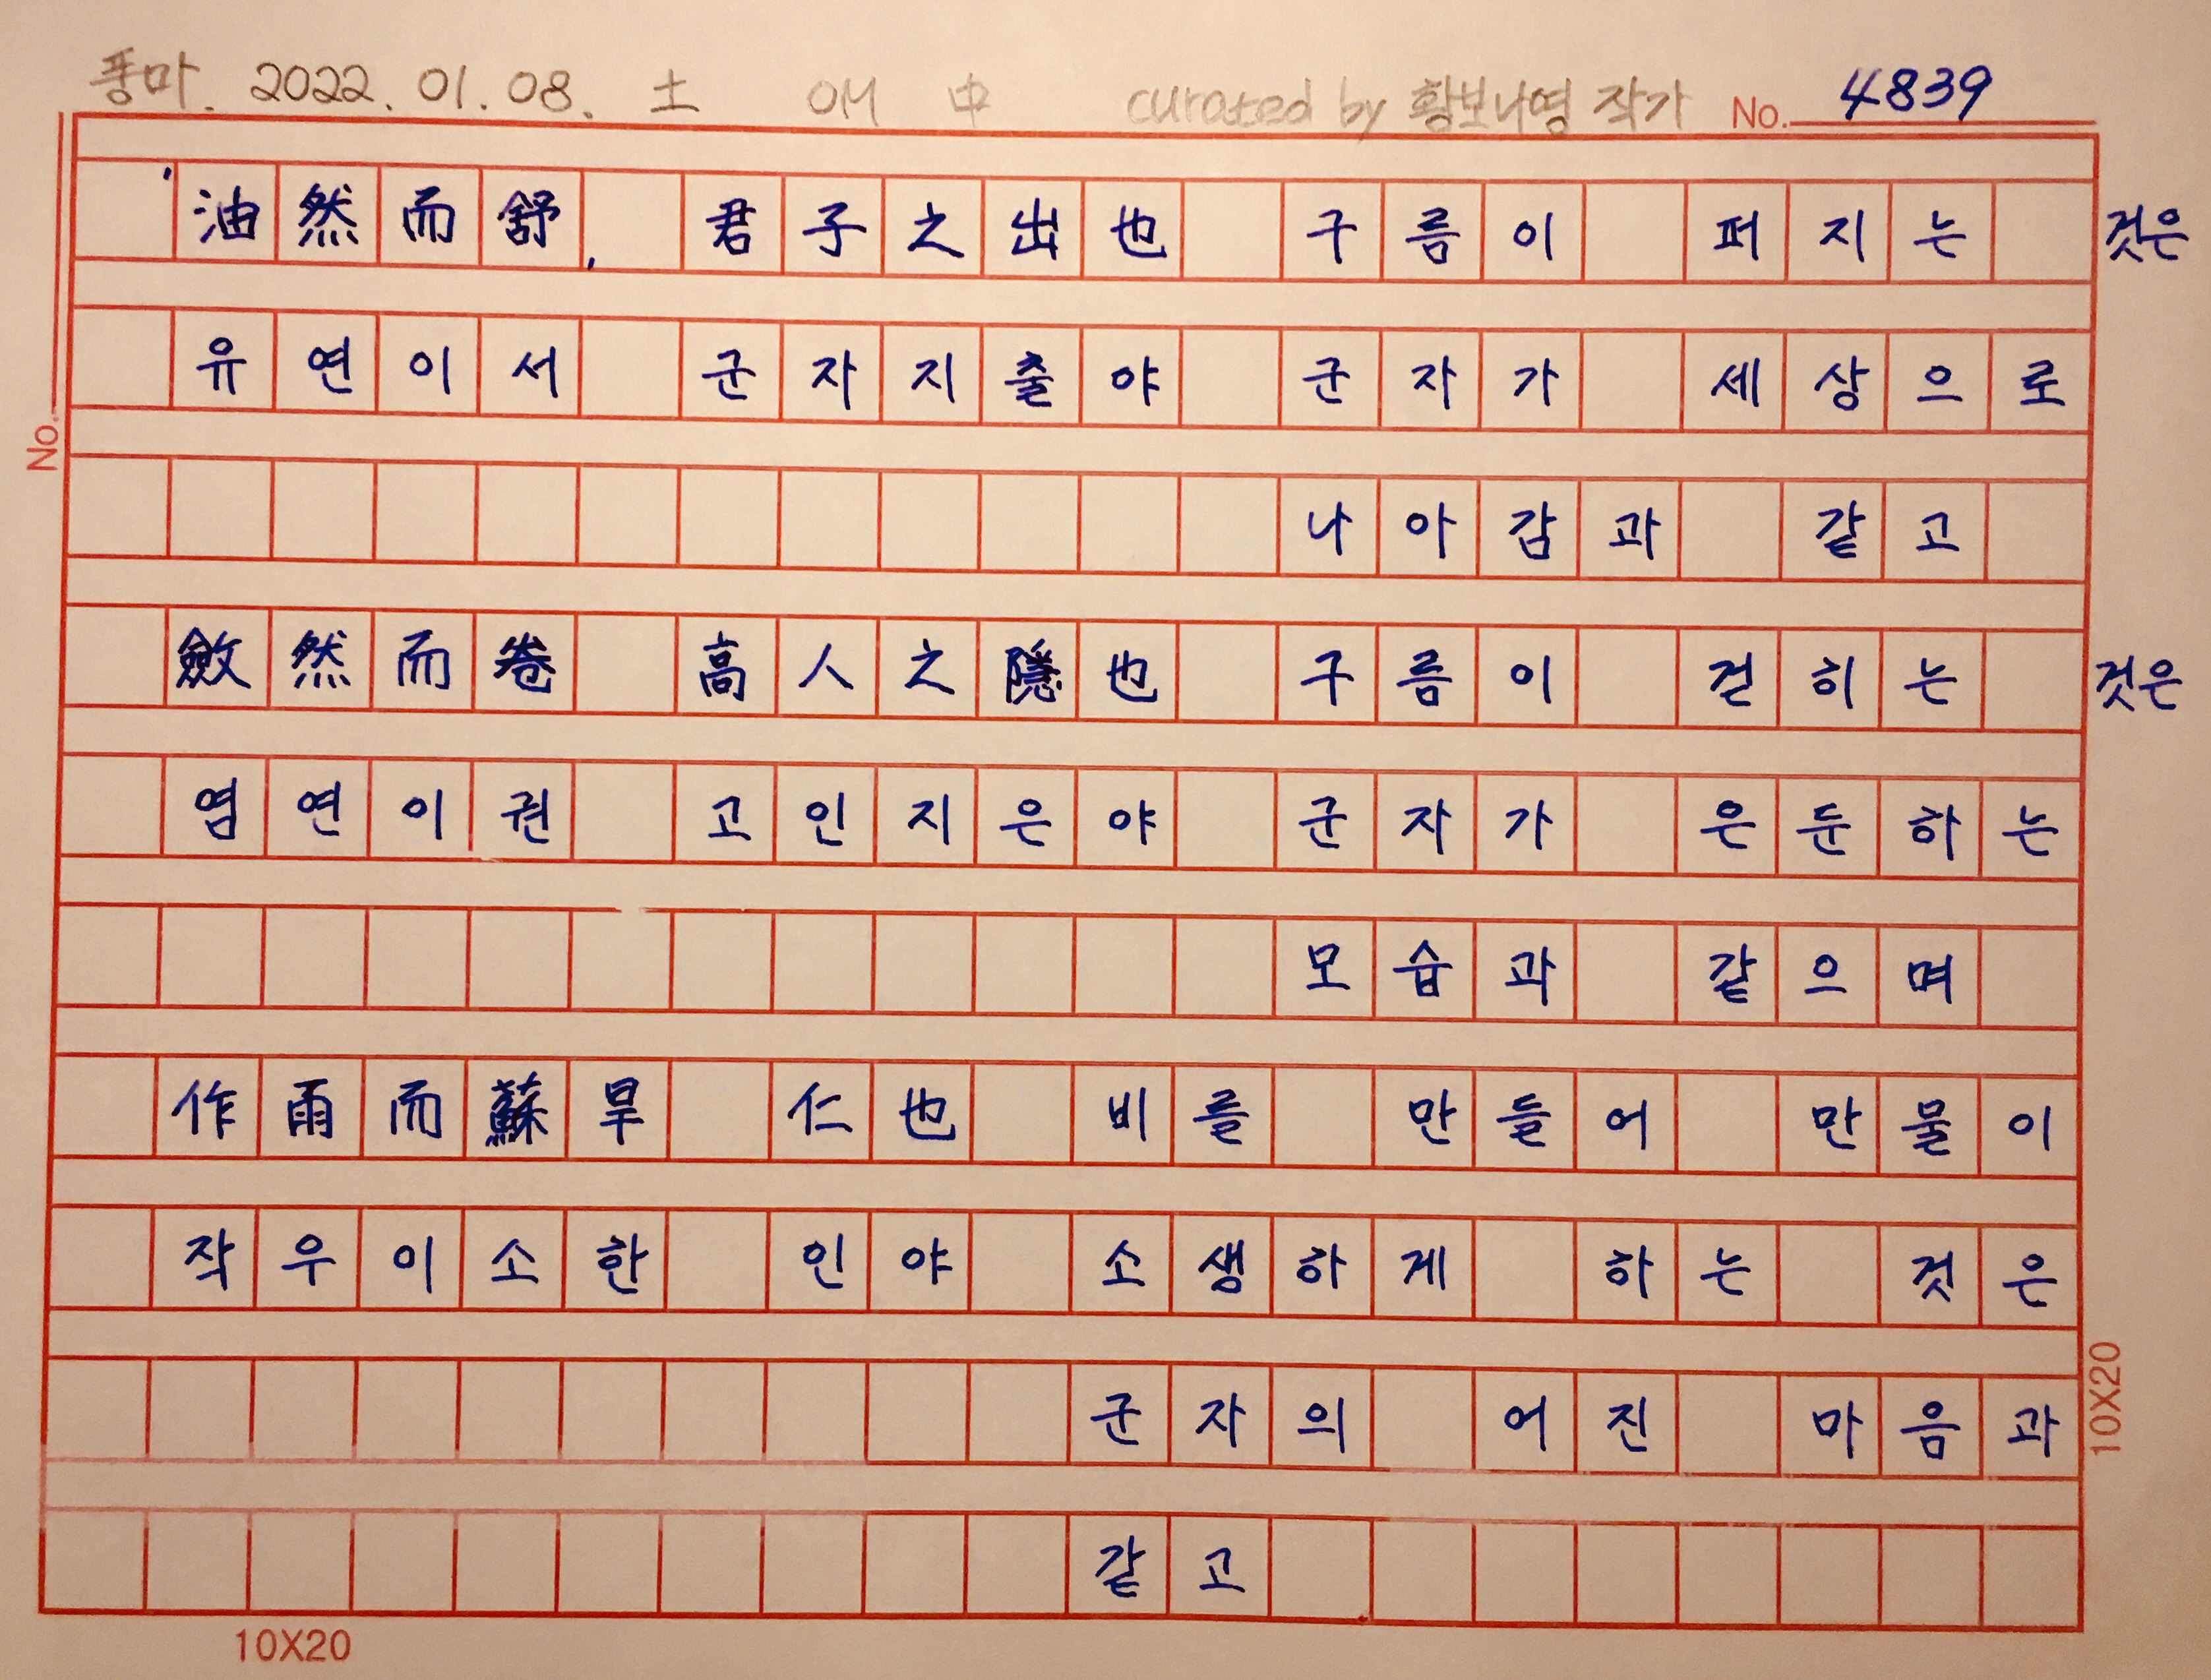 풍마. 2022. 01. 08. 土 OM 中 curated by 황보나영 작가 No. 4839
'油然而舒, 君子之出也 구름이 퍼지는 것은
유연이서 군자지출야 군자가 세상으로
No.
나아감과 같고
斂然而卷 高人之隱也 구름이 걷히는 것은
염연이권 고인지은야 군자가 은둔하는
모습과 같으며
作雨而蘇旱 仁也 비를 만들어 만물이
작우이소한 인야 소생하게 하는 것은
군자의 어진 마음과
10X20
같고
10X20